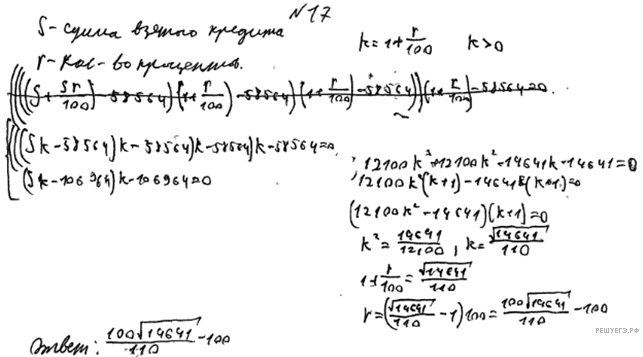 №17
S - сумма взятого кредита
r - кол-во процентов.
k = 1 + r/100   k > 0
((((S + Sr/100) - 58564)(1 + r/100) - 58564)(1 + r/100) - 58564))(1 + r/100) - 58564 = 0.
(((Sk - 58564)k - 58564)k - 58564)k - 58564 = 0,
(Sk - 106964)k - 106964 = 0
12100k³ + 12100k² - 14641k - 14641 = 0
12100k²(k+1) - 14641(k+1) = 0
(12100k² - 14641)(k+1) = 0
k² = 14641/12100, k = √14641/110
1 + r/100 = √14641/110
r = (√14641/110 - 1)100 = 100√14641/110 - 100
Ответ: 100√14641/110 - 100
РЕШУЕГЭ.РФ